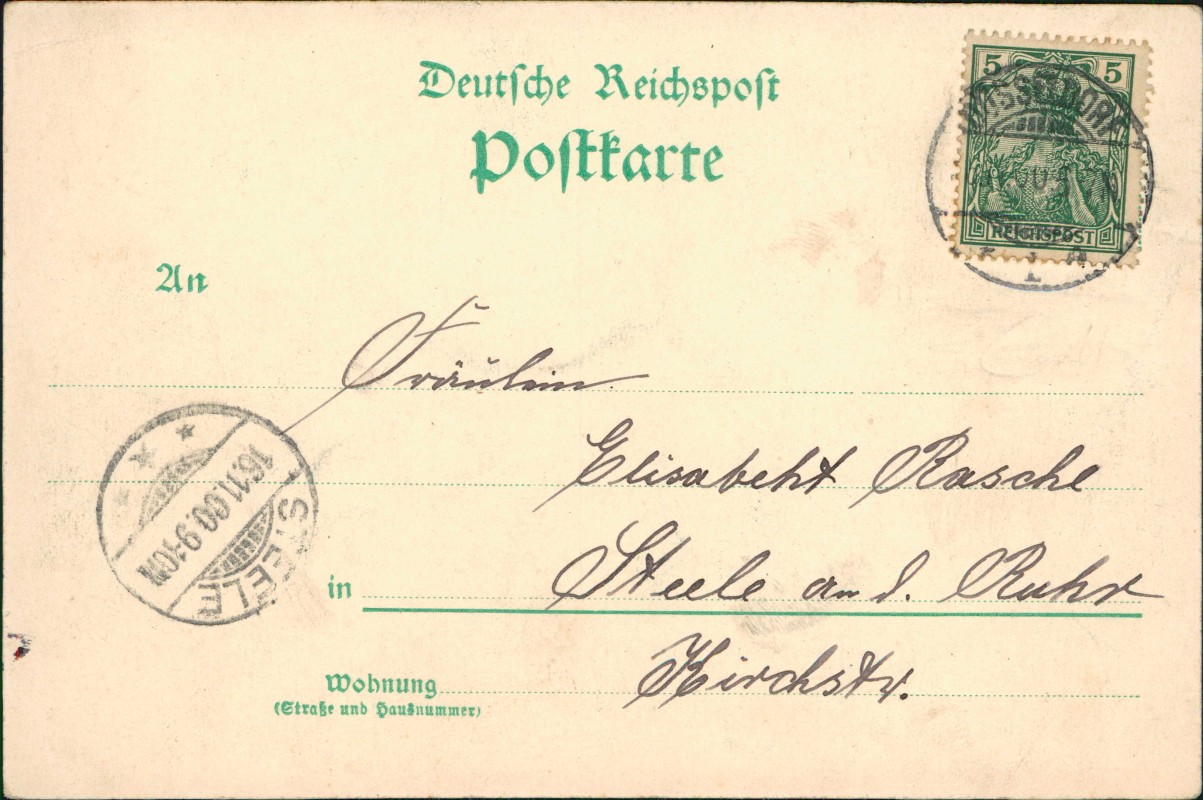 Deutsche Reichspost
Postkarte
5 5
DÜSSELDORF
REICHSPOST
1.
An
Fräulein
Elisabeht Rasche
16.11.00.9-10N
STEELE
in Steele an d. Ruhr
Wohnung Kirchstr.
(Straße und Hausnummer)